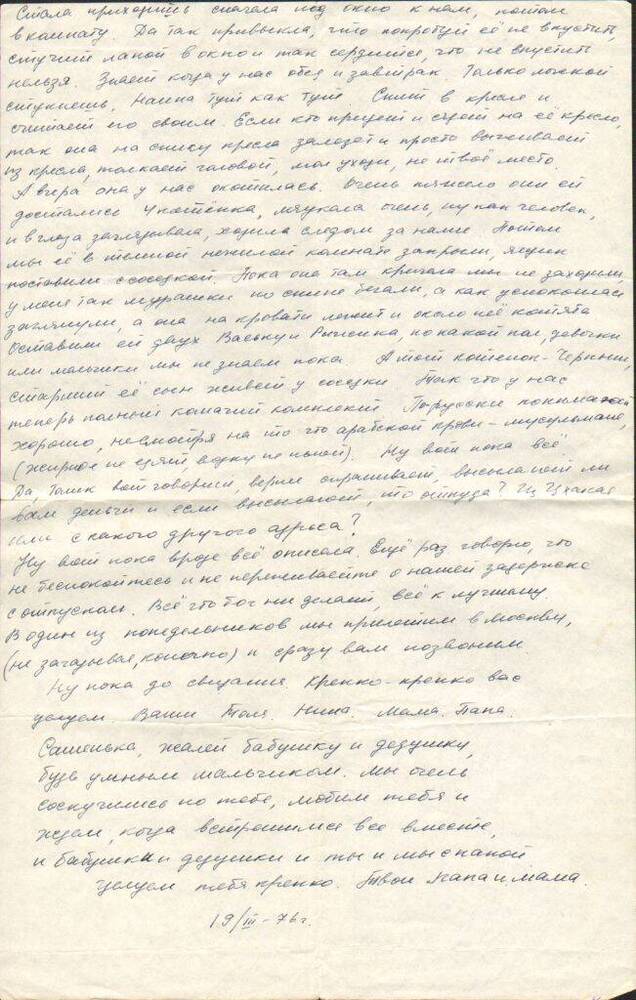 Стала приходить сначала под окно к нам, потом
в комнату. Да так привыкла, что попробуй её не впустить,
стучит лапой в окно и так сердится, что не впустить
нельзя. Знает когда у нас обед и завтрак. Только ложкой
стукнешь, Наина тут как тут. Спит в кресле и
считает его своим. Если кто придет и сядет на её кресло,
так она на спинку кресла залезет и просто выживает
из кресла, толкает головой, мол уходи, не твоё место.
А вчера она у нас окотилась. Очень тяжело они ей
достались 4 котёнка, мяукала очень, ну как человек,
и в глаза заглядывала, ходила следом за нами. Потом
мы её в тёмной нежилой комнате закрыли, ящик
поставили с соседкой. Пока она там кричала мы не заходили,
у меня так мурашки по спине бегали, а как успокоилась
заглянули, а она на кровати лежит и около неё котята
Оставили ей двух Ваську и Рыжика, но какой пол, девочки
или мальчики мы не знаем пока. А тот котенок - Черныш,
старший её сын живет у соседки. Так что у нас
теперь полный кошачий комплект. По русски понимают
хорошо, несмотря на то что арабской крови - мусульмане,
(жирное не едят, водку не пьют). Ну вот пока всё
Да, Толик вот говорит, верни спрашивает, высылают ли
вам деньги и если высылают, то откуда? Из Цхакая
или с какого другого адреса?
Ну вот пока вроде всё описала. Ещё раз говорю, что
не беспокойтесь и не переживайте о нашей задержке
с отпуском. Всё что бог ни делает, всё к лучшему.
В один из понедельников мы прилетим в Москву,
(не загадывая, конечно) и сразу вам позвоним.
Ну пока до свидания. Крепко-крепко вас
целуем. Ваши Толя. Нина. Мама. Папа.
Сашенька, жалей бабушку и дедушку,
будь умным мальчиком. Мы очень
соскучились по тебе, любим тебя и
ждем, когда встретимся все вместе,
и бабушки и дедушки и ты и мы с папой
целуем тебя крепко. Твои папа и мама.
19/III-76г.